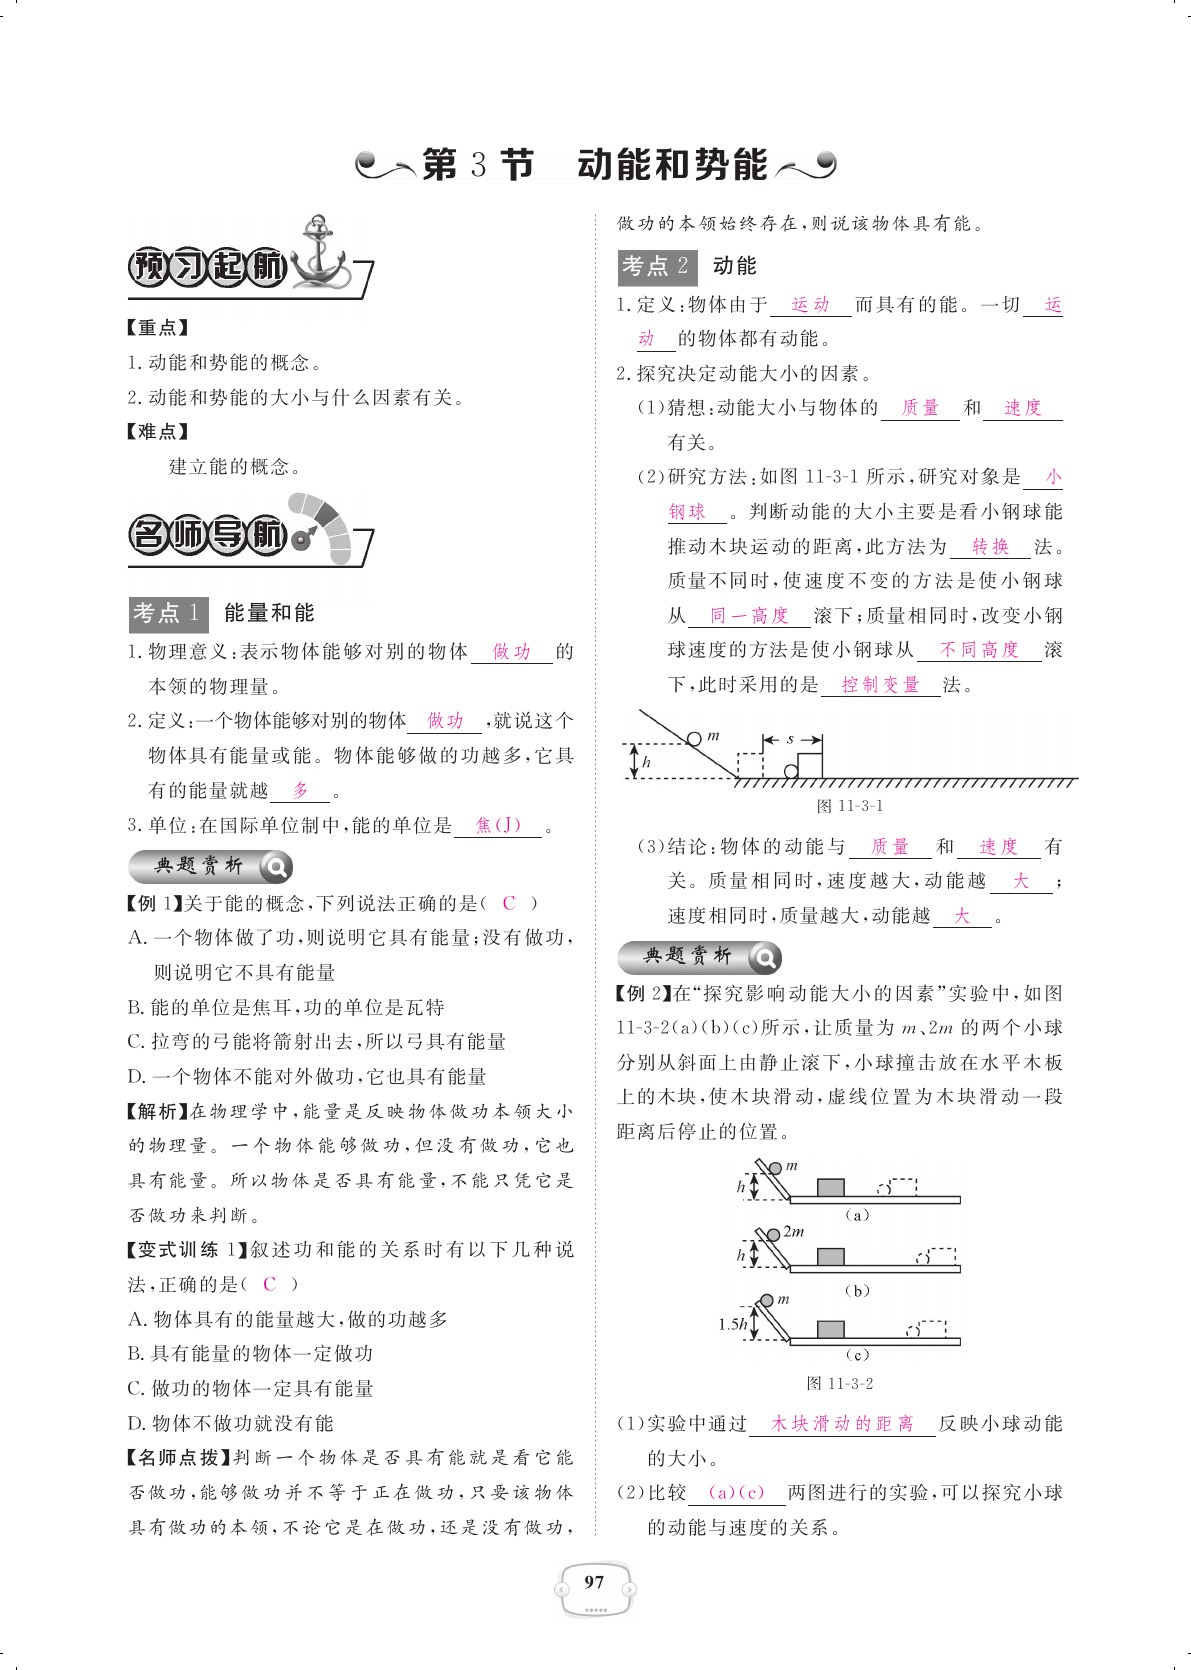 第 3 节　动能和势能
预习起航
【重点】
1. 动能和势能的概念。
2. 动能和势能的大小与什么因素有关。
【难点】
建立能的概念。
名师导航
考点 1　能量和能
1. 物理意义:表示物体能够对别的物体 做功 的
本领的物理量。
2. 定义:一个物体能够对别的物体 做功 ,就说这个
物体具有能量或能。物体能够做的功越多,它具
有的能量就越 多 。
3. 单位:在国际单位制中,能的单位是 焦(J) 。
典题赏析
【例 1】关于能的概念,下列说法正确的是( C )
A. 一个物体做了功,则说明它具有能量;没有做功,
则说明它不具有能量
B. 能的单位是焦耳,功的单位是瓦特
C. 拉弯的弓能将箭射出去,所以弓具有能量
D. 一个物体不能对外做功,它也具有能量
【解析】在物理学中,能量是反映物体做功本领大小
的物理量。一个物体能够做功,但没有做功,它也
具有能量。所以物体是否具有能量,不能只凭它是
否做功来判断。
【变式训练 1】叙述功和能的关系时有以下几种说
法,正确的是( C )
A. 物体具有的能量越大,做的功越多
B. 具有能量的物体一定做功
C. 做功的物体一定具有能量
D. 物体不做功就没有能
【名师点拨】判断一个物体是否具有能就是看它能
否做功,能够做功并不等于正在做功,只要该物体
具有做功的本领,不论它是在做功,还是没有做功,
做功的本领始终存在,则说该物体具有能。
考点 2　动能
1. 定义:物体由于 运动 而具有的能。一切 运
动 的物体都有动能。
2. 探究决定动能大小的因素。
(1)猜想:动能大小与物体的 质量 和 速度
有关。
(2)研究方法:如图 11-3-1 所示,研究对象是 小
钢球 。判断动能的大小主要是看小钢球能
推动木块运动的距离,此方法为 转换 法。
质量不同时,使速度不变的方法是使小钢球
从 同一高度 滚下;质量相同时,改变小钢
球速度的方法是使小钢球从 不同高度 滚
下,此时采用的是 控制变量 法。
m
s
h
图 11-3-1
(3)结论:物体的动能与 质量 和 速度 有
关。质量相同时,速度越大,动能越 大 ;
速度相同时,质量越大,动能越 大 。
典题赏析
【例 2】在“探究影响动能大小的因素”实验中,如图
11-3-2(a)(b)(c)所示,让质量为 m、2m 的两个小球
分别从斜面上由静止滚下,小球撞击放在水平木板
上的木块,使木块滑动,虚线位置为木块滑动一段
距离后停止的位置。
m
h
(a)
2m
h
(b)
m
1.5h
(c)
图 11-3-2
(1)实验中通过 木块滑动的距离 反映小球动能
的大小。
(2)比较 (a)(c) 两图进行的实验,可以探究小球
的动能与速度的关系。
97